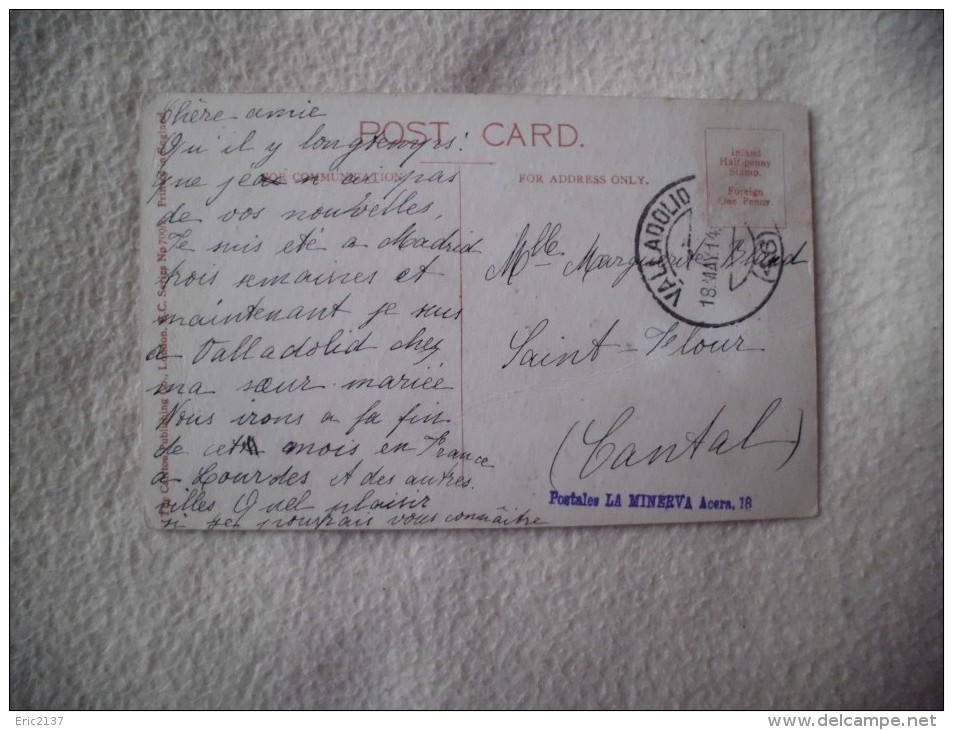 Chère amie
Qu'il y longtemps!
que je n ai pas
de vos nouvelles,
Je suis eté a Madrid
trois semaines et
maintenant je suis
a Valladolid chez
ma sœur mariée
Nous irons a la fin
de cet mois en France
a Lourdes et des autres
villes Quel plaisir
si je pourrais vous connaître
POST CARD.
FOR COMMUNICATION
FOR ADDRESS ONLY.
Inland
Half-penny
Stamp.
Foreign
One Penny.
VALLADOLID
18.MAY.14
Mlle Marguerite
Saint-Flour
(Cantal)
Postales LA MINERVA Acera, 18
Publishing Co., London, E.C. Series No Printed in England
Eric2137
http://www.delcampe.net